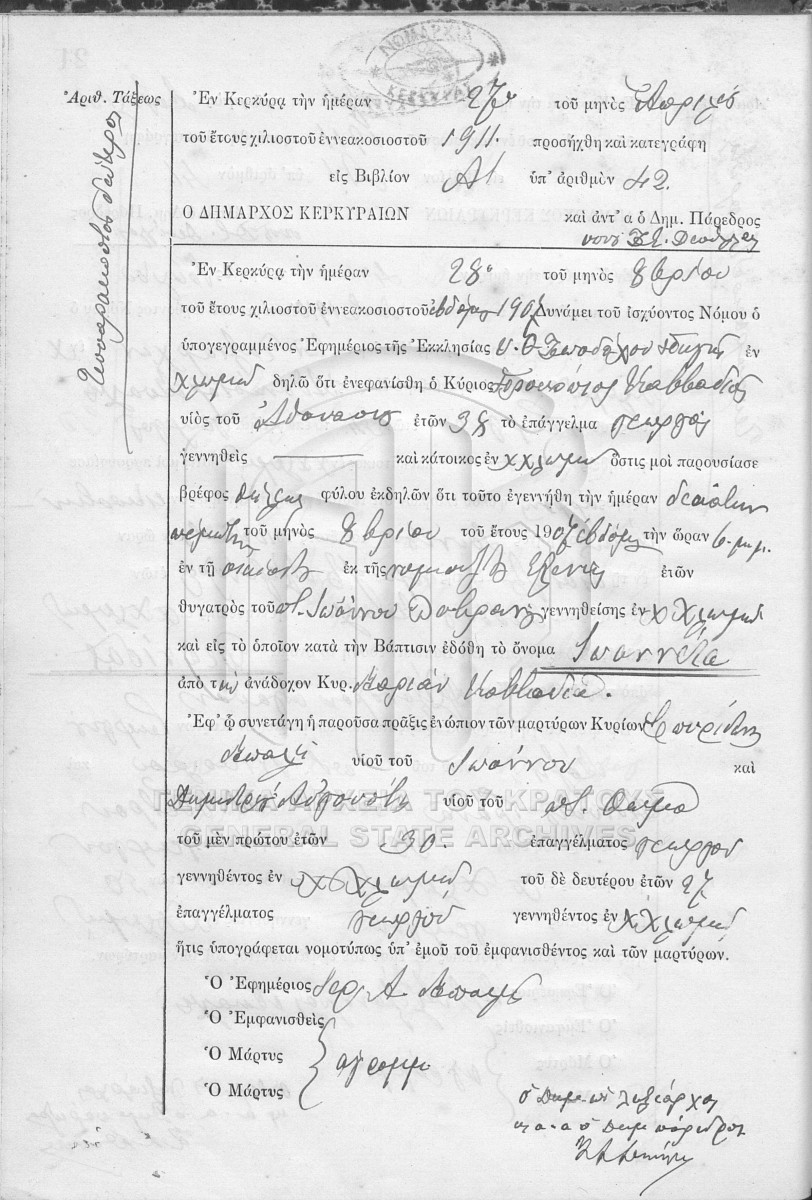 ΝΟΜΑΡΧΙΑ
ΚΕΡΚΥΡΑΣ
Ἀριθ. Τάξεως
Ἐν Κερκύρᾳ τὴν ἡμέραν 27 τοῦ μηνὸς Ἀπριλίου
τοῦ ἔτους χιλιοστοῦ ἐννεακοσιοστοῦ 1911. προσήχθη καὶ κατεγράφη
εἰς Βιβλίον Α1 ὑπ' ἀριθμὸν 42.
Ο ΔΗΜΑΡΧΟΣ ΚΕΡΚΥΡΑΙΩΝ καὶ ἀντ' α ὁ Δημ. Πάρεδρος
Ἐν Κερκύρᾳ τὴν ἡμέραν 28 τοῦ μηνὸς 8βρίου
τοῦ ἔτους χιλιοστοῦ ἐννεακοσιοστοῦ ἑβδόμου 1907 Δυνάμει τοῦ ἰσχύοντος Νόμου ὁ
ὑπογεγραμμένος Ἐφημέριος τῆς Ἐκκλησίας Υ. Θ. ἐν
Χλωμῷ δηλῶ ὅτι ἐνεφανίσθη ὁ Κύριος Προκόπιος Καββαδίας
υἱὸς τοῦ Ἀθανασίου ἐτῶν 38 τὸ ἐπάγγελμα γεωργὸς
γεννηθεὶς καὶ κάτοικος ἐν Χλωμῷ ὅστις μοὶ παρουσίασε
βρέφος θήλεος φύλου ἐκδηλῶν ὅτι τοῦτο ἐγεννήθη τὴν ἡμέραν δεκάτην
πέμπτην τοῦ μηνὸς 8βρίου τοῦ ἔτους 1907 ἑβδόμου τὴν ὥραν 6 μ.μ.
ἐν τῇ οἰκίᾳ ἐκ τῆς νομίμου Ἑλένης ἐτῶν
θυγατρὸς τοῦ Ἰωάννου γεννηθείσης ἐν Χλωμῷ
καὶ εἰς τὸ ὁποῖον κατὰ τὴν Βάπτισιν ἐδόθη τὸ ὄνομα Ἰωαννέτα
ἀπὸ τὴν ἀνάδοχον Κυρ. Μαρίαν Καββαδία.
Ἐφ' ᾧ συνετάγη ἡ παροῦσα πρᾶξις ἐνώπιον τῶν μαρτύρων Κυρίων Σπυρίδωνος
υἱοῦ τοῦ Ἰωάννου καὶ
Δημητρίου υἱοῦ τοῦ
ΓΕΝΙΚΑ ΑΡΧΕΙΑ ΤΟΥ ΚΡΑΤΟΥΣ
τοῦ μὲν πρώτου ἐτῶν 30. ἐπαγγέλματος γεωργοῦ
GENERAL STATE ARCHIVES
γεννηθέντος ἐν Χλωμῷ τοῦ δὲ δευτέρου ἐτῶν 27
ἐπαγγέλματος γεωργοῦ γεννηθέντος ἐν Χλωμῷ
ἥτις ὑπογράφεται νομοτύπως ὑπ' ἐμοῦ τοῦ ἐμφανισθέντος καὶ τῶν μαρτύρων.
Ὁ Ἐφημέριος Ἱερ. Α.
Ὁ Ἐμφανισθεὶς
Ὁ Μάρτυς ἀγράμμ
Ὁ Μάρτυς
ὁ Δημ. ληξίαρχος
κ. α. α ὁ Δημ. πάρεδρος